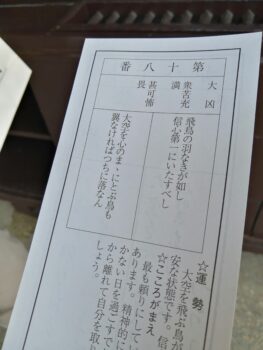 第十八番
大凶
衆苦充満
甚可怖畏
飛鳥の羽なきが如し
信心第一にいたすべし
大空を心のまゝにとぶ鳥も
翼なければつちに落なん
☆運勢
大空を飛ぶ鳥が
安な状態です。信
☆こころがまえ
最も頼りにして
あります。精神的に
かない日を過ごすで
しょう。
から離れて自分を取り